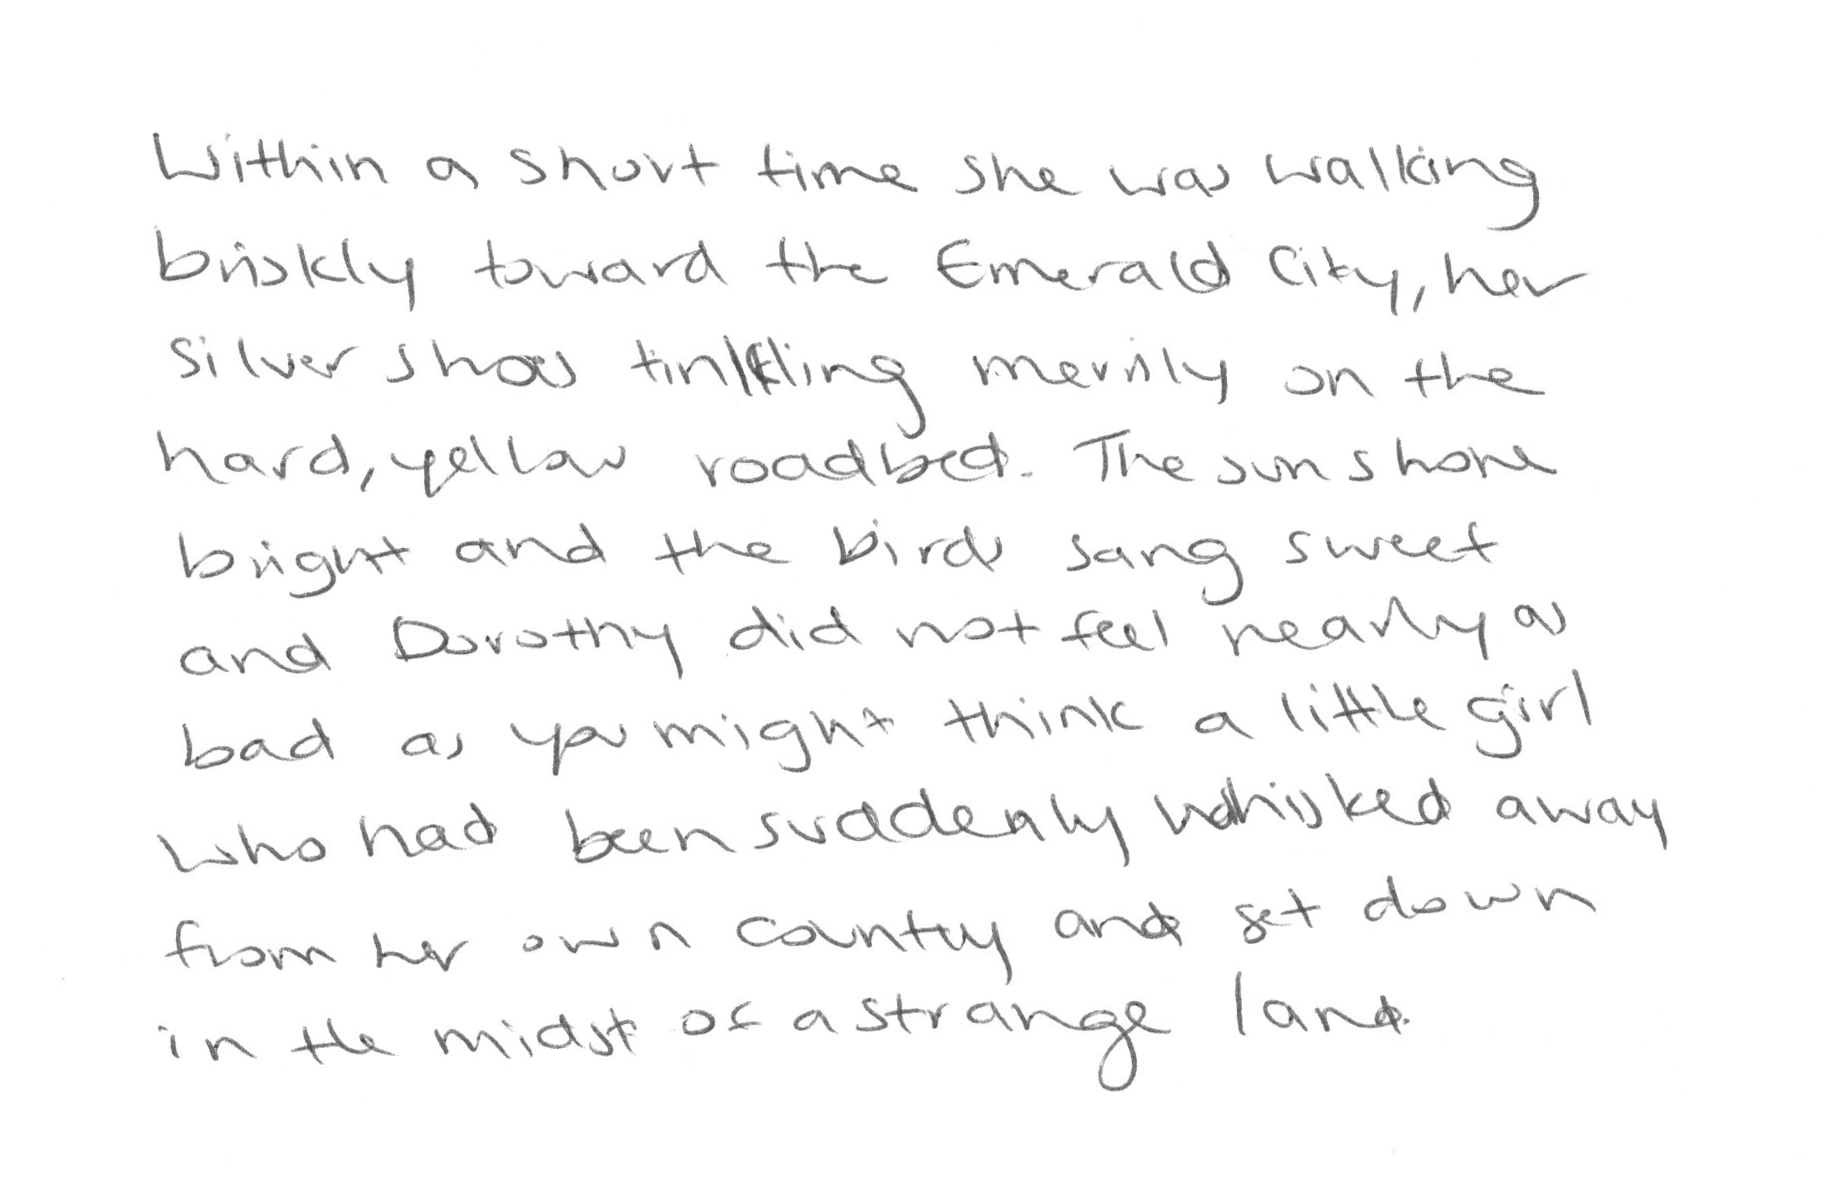 Within a short time she was walking
briskly toward the Emerald City, her
silver shoes tinkling merrily on the
hard, yellow roadbed. The sun shone
bright and the birds sang sweet
and Dorothy did not feel nearly as
bad as you might think a little girl
who had been suddenly whisked away
from her own country and set down
in the midst of a strange land.